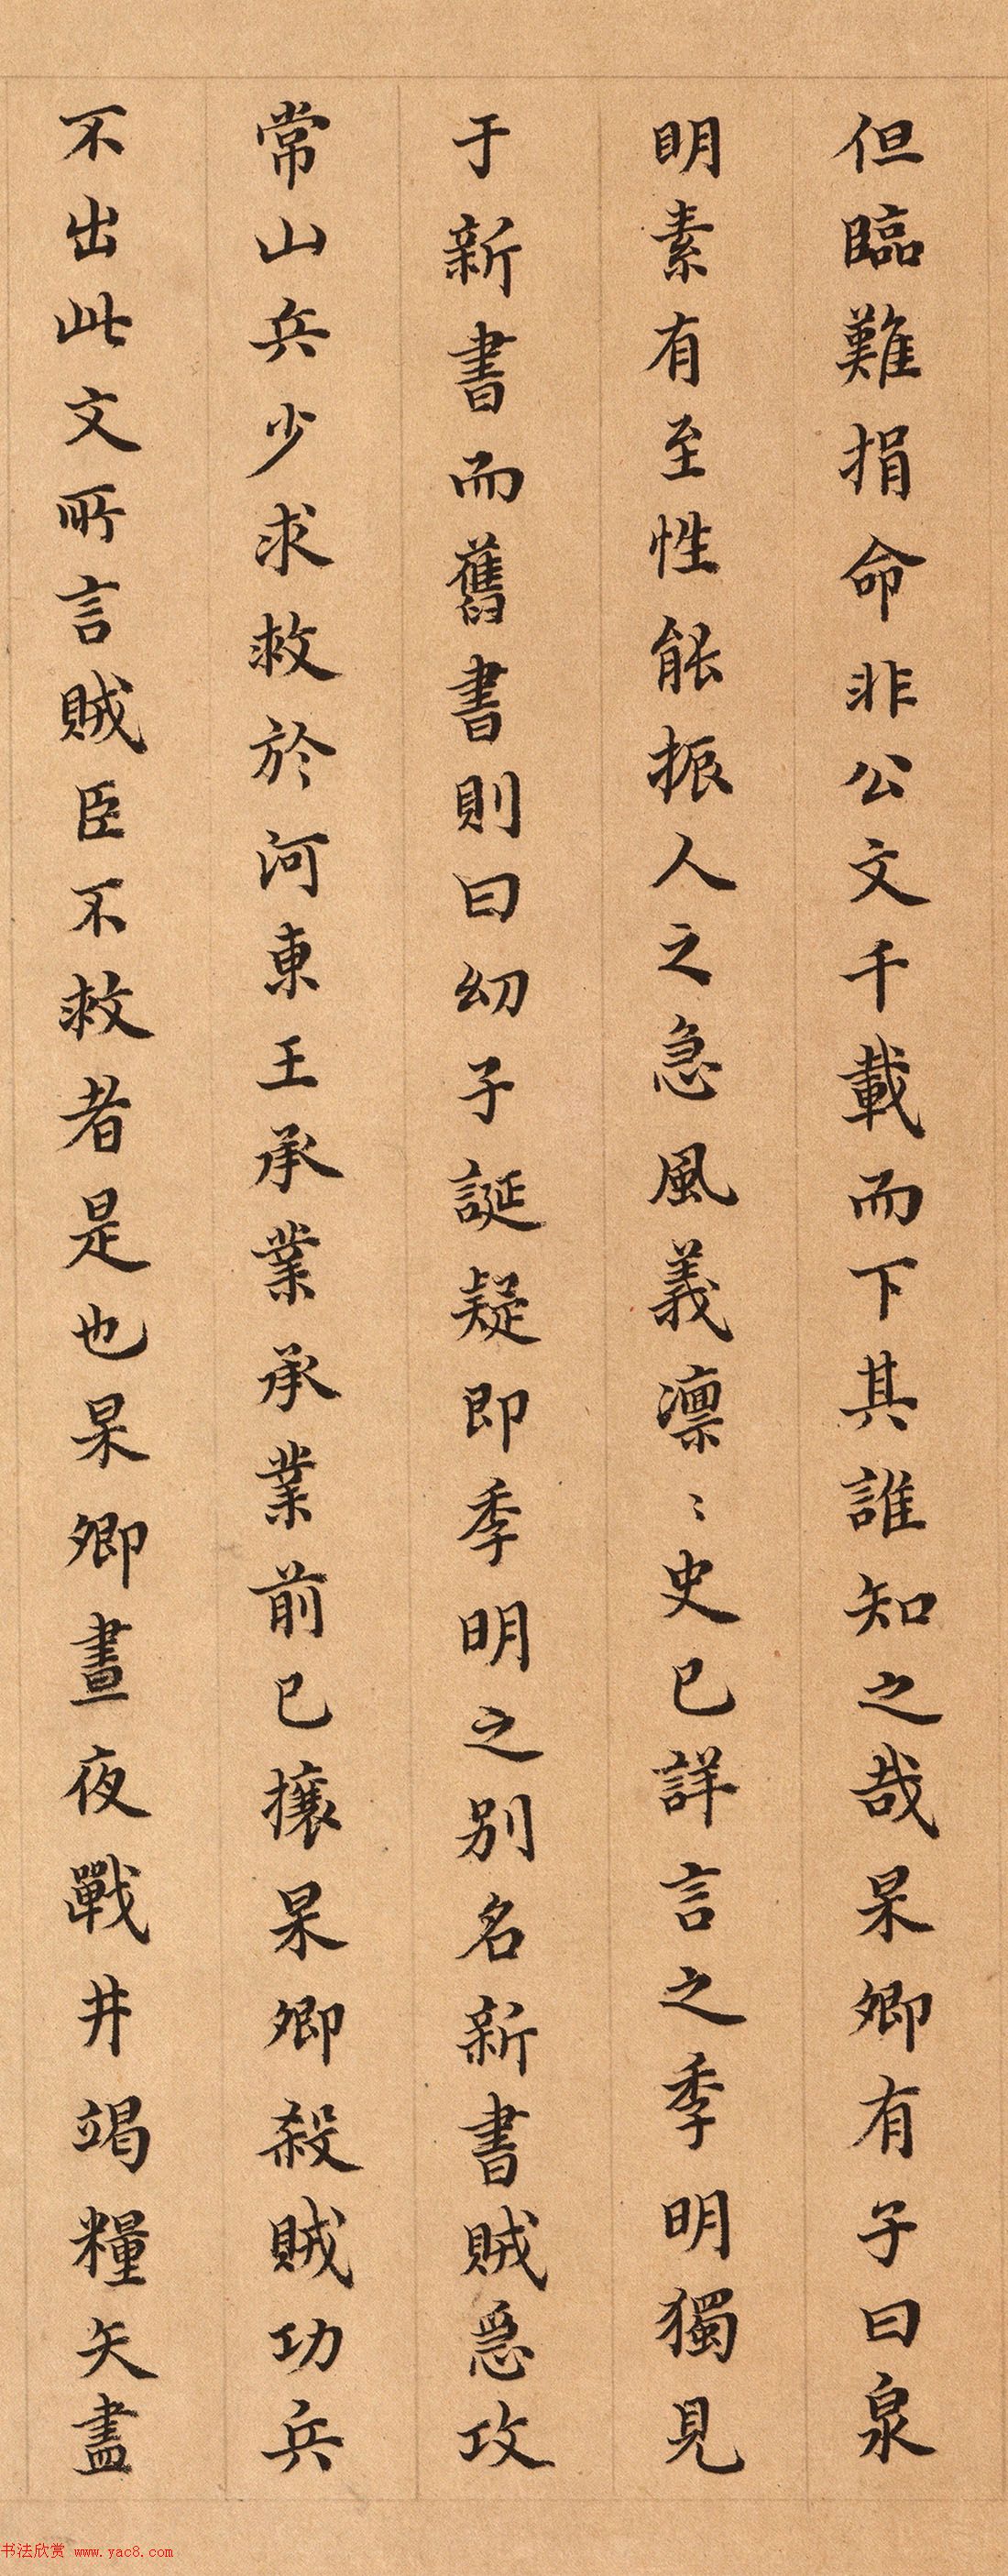 但臨難捐命非公文千載而下其誰知之哉杲卿有子曰泉
明素有至性能振人之急風義凛〻史已詳言之季明獨見
于新書而舊書則曰幼子誕疑即季明之别名新書賊急攻
常山兵少求救於河東王承業承業前已攘杲卿殺賊功兵
不出此文所言賊臣不救者是也杲卿晝夜戰井竭糧矢盡
书法欣赏 www.yac8.com